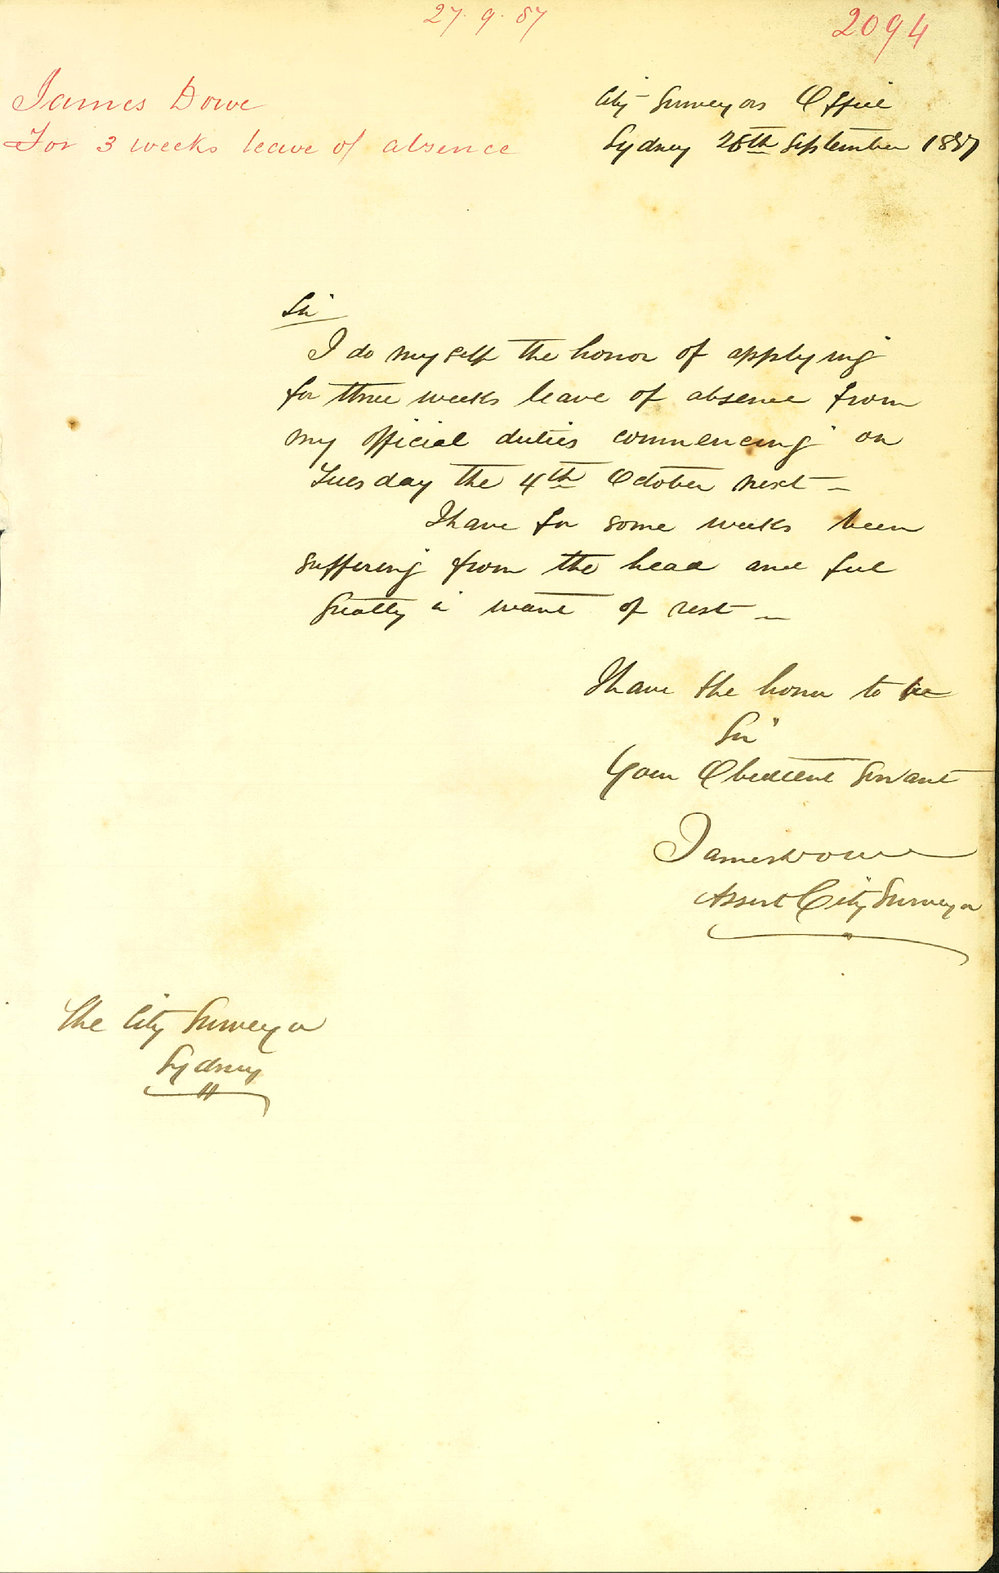 27.9.87
2094
James Dowe
For 3 weeks leave of absence
City Surveyors Office
Sydney 26th September 1887
Sir
I do myself the honor of applying
for three weeks leave of absence from
my official duties commencing on
Tuesday the 4th October next _
I have for some weeks been
suffering from the head and feel
greatly in want of rest _
I have the honor to be
Sir
Your Obedient Servant
James Dowe
Assist City Surveyor
The City Surveyor
Sydney